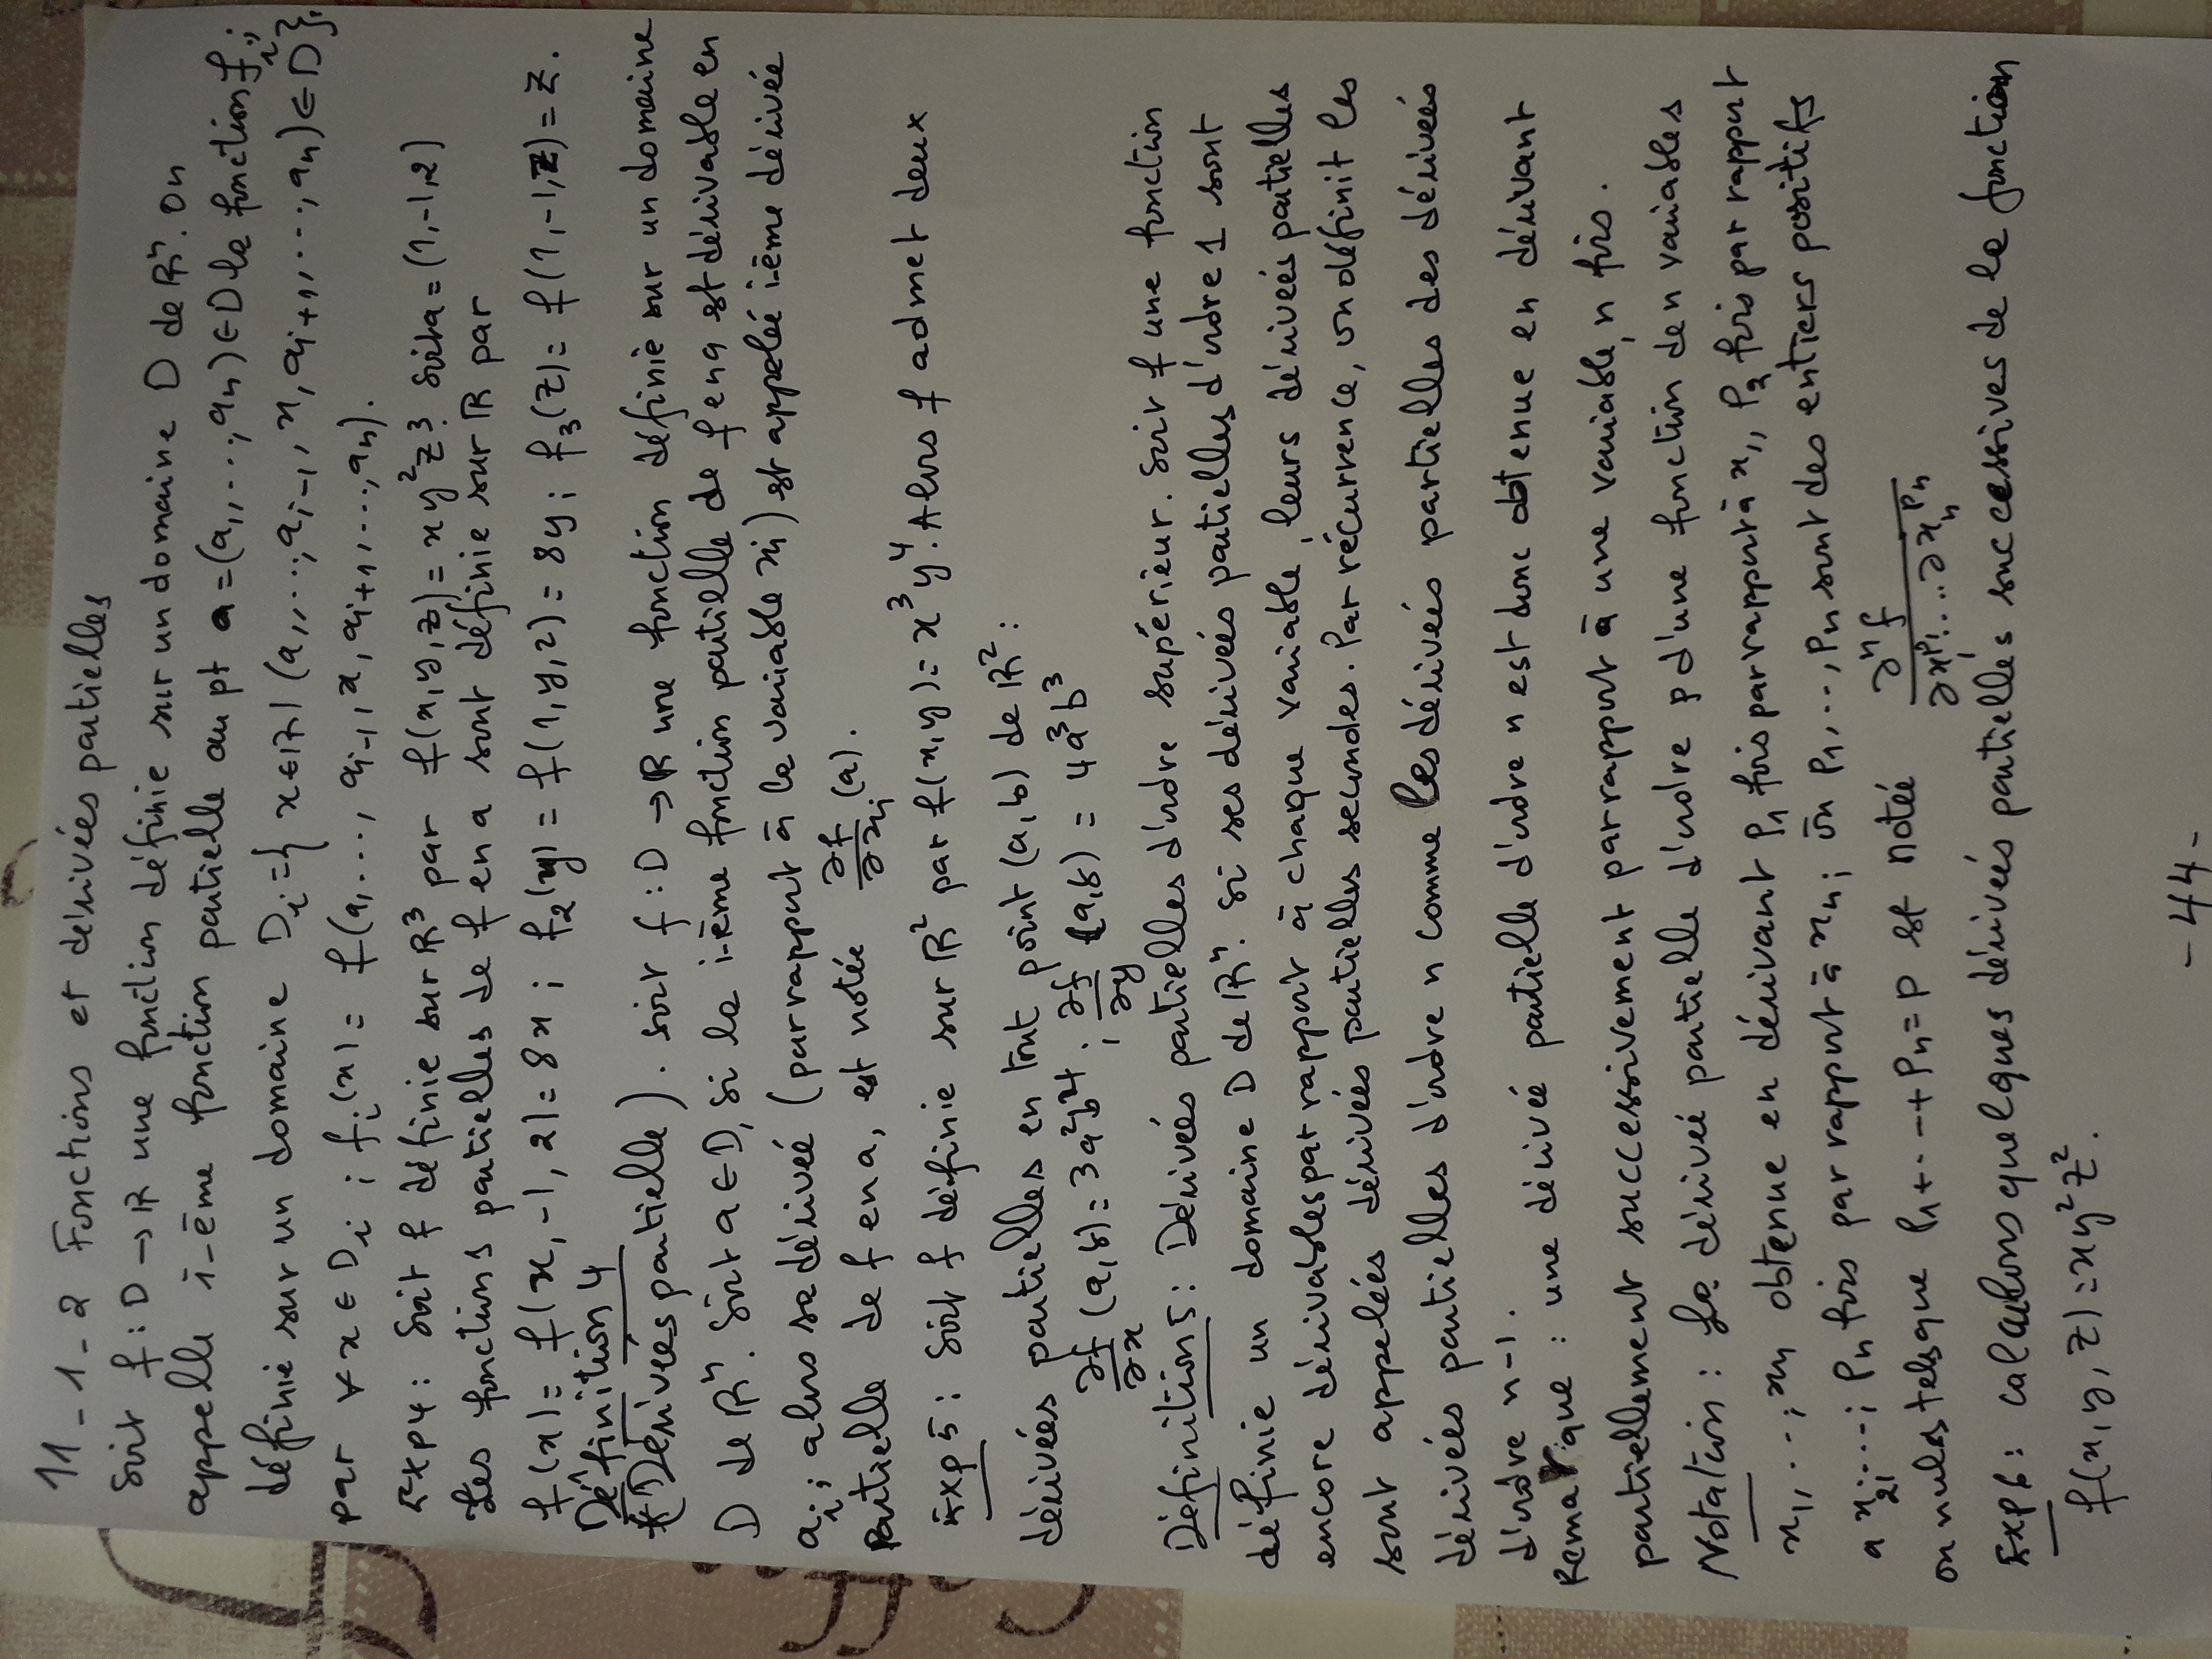 11-1-2 Fonctions et dérivées partielles
Soit f : D → ℝ une fonction définie sur un domaine D de ℝⁿ. On
appelle i-ème fonction partielle au pt a = (a₁, ..., aₙ) ∈ D la fonction fᵢ;
définie sur un domaine Dᵢ = { x ∈ ℝ / (a₁, ..., aᵢ₋₁, x, aᵢ₊₁, ..., aₙ) ∈ D },
par ∀ x ∈ Dᵢ ; fᵢ(x) = f(a₁, ..., aᵢ₋₁, x, aᵢ₊₁, ..., aₙ).
Exp4: Soit f définie sur ℝ³ par f(x, y, z) = x y² z³. Soit a = (1, -1, 2)
Les fonctions partielles de f en a sont définie sur ℝ par
f(x) = f(x, -1, 2) = 8x ; f₂(y) = f(1, y, 2) = 8y ; f₃(z) = f(1, -1, z) = z.
Définition 4
(Dérivées partielle). soit f : D → ℝ une fonction définie sur un domaine
D de ℝⁿ. Soit a ∈ D, si la i-ème fonction partielle de f en a est dérivable en
aᵢ; alors sa dérivée (par rapport à la variable xi) est appelée i-ème dérivée
partielle de f en a, est notée ∂f/∂xᵢ (a).
Exp5: Soit f définie sur ℝ² par f(x, y) = x³ y⁴. Alors f admet deux
dérivées partielles en tout point (a, b) de ℝ²:
∂f/∂x (a, b) = 3a²b⁴ ; ∂f/∂y (a, b) = 4a³b³
Définition 5: Dérivées partielles d'ordre supérieur. Soit f une fonction
définie un domaine D de ℝⁿ. Si ses dérivées partielles d'ordre 1 sont
encore dérivables par rapport à chaque variable, leurs dérivées partielles
sont appelées dérivées partielles secondes. Par récurrence, on définit les
dérivées partielles d'ordre n comme les dérivées partielles des dérivées
d'ordre n-1.
Remarque : une dérivée partielle d'ordre n est donc obtenue en dérivant
partiellement successivement par rapport à une variable, n fois.
Notation : La dérivée partielle d'ordre p d'une fonction de n variables
x₁, ..., xn obtenue en dérivant P₁ fois par rapport à x₁, P₂ fois par rapport
a x₂, ...; Pn fois par rapport à xn; où P₁, ..., Pn sont des entiers positifs
ou nuls telsque P₁ + ... + Pn = P est notée ∂ⁿf / ∂x₁^P₁ ... ∂xₙ^Pn
Exp6: calculons quelques dérivées partielles successives de la fonction
f(x, y, z) = xy²z².
- 44 -